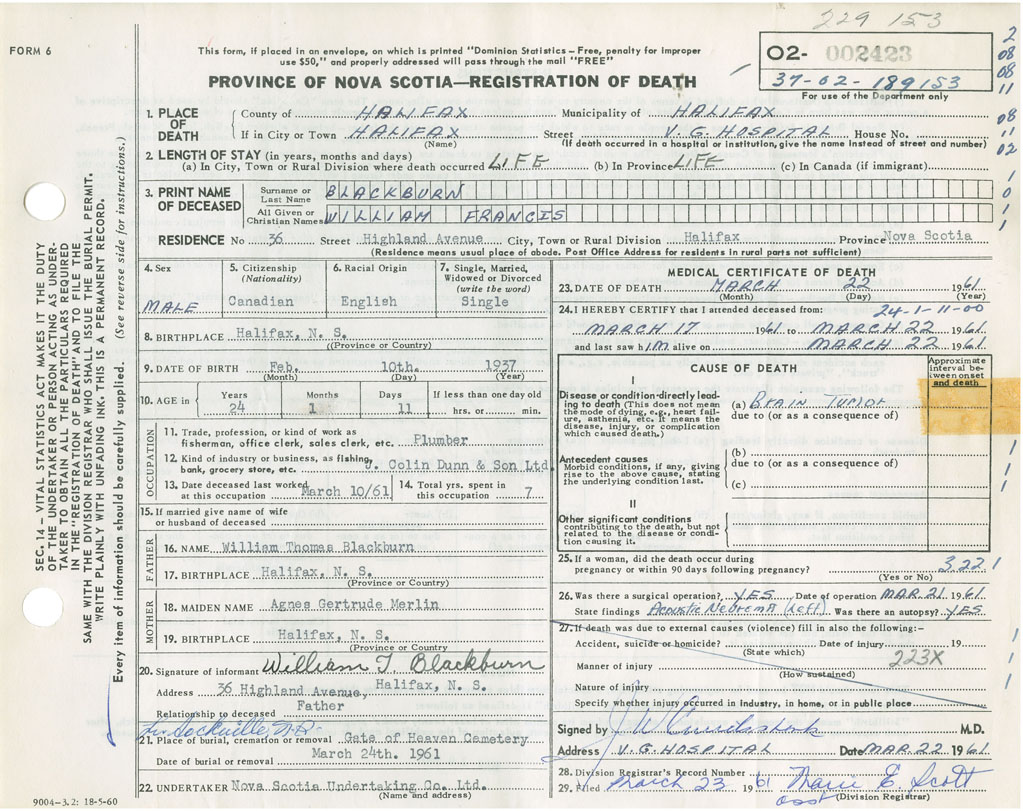 229 153
FORM 6
This form, if placed in an envelope, on which is printed "Dominion Statistics – Free, penalty for improper
use $50," and properly addressed will pass through the mail "FREE"
PROVINCE OF NOVA SCOTIA—REGISTRATION OF DEATH
O2- 002423
37-02-189153
For use of the Department only
2
08
08
11
08
11
02
1
0
1
1
SEC. 14 – VITAL STATISTICS ACT MAKES IT THE DUTY
OF THE UNDERTAKER OR PERSON ACTING AS UNDER-
TAKER TO OBTAIN ALL THE PARTICULARS REQUIRED
IN THE "REGISTRATION OF DEATH" AND TO FILE THE
SAME WITH THE DIVISION REGISTRAR WHO SHALL ISSUE THE BURIAL PERMIT.
WRITE PLAINLY WITH UNFADING INK. THIS IS A PERMANENT RECORD.
Every item of information should be carefully supplied. (See reverse side for instructions.)
1. PLACE OF DEATH
County of HALIFAX Municipality of HALIFAX
If in City or Town HALIFAX Street V. G. HOSPITAL House No.
(Name) (If death occurred in a hospital or institution, give the name instead of street and number)
2. LENGTH OF STAY (in years, months and days)
(a) In City, Town or Rural Division where death occurred LIFE (b) In Province LIFE (c) In Canada (if immigrant)
3. PRINT NAME OF DECEASED
Surname or Last Name BLACKBURN
All Given or Christian Names WILLIAM FRANCIS
RESIDENCE No 36 Street Highland Avenue City, Town or Rural Division Halifax Province Nova Scotia
(Residence means usual place of abode. Post Office Address for residents in rural parts not sufficient)
4. Sex
MALE
5. Citizenship
(Nationality)
Canadian
6. Racial Origin
English
7. Single, Married,
Widowed or Divorced
(write the word)
Single
8. BIRTHPLACE Halifax, N. S.
(Province or Country)
9. DATE OF BIRTH Feb. 10th. 1937
(Month) (Day) (Year)
10. AGE in Years Months Days If less than one day old
24 1 11 hrs. or min.
OCCUPATION
11. Trade, profession, or kind of work as
fisherman, office clerk, sales clerk, etc. Plumber
12. Kind of industry or business, as fishing,
bank, grocery store, etc. J. Colin Dunn & Son Ltd.
13. Date deceased last worked
at this occupation March 10/61
14. Total yrs. spent in
this occupation 7
15. If married give name of wife
or husband of deceased
FATHER
16. NAME William Thomas Blackburn
17. BIRTHPLACE Halifax, N. S.
(Province or Country)
MOTHER
18. MAIDEN NAME Agnes Gertrude Merlin
19. BIRTHPLACE Halifax, N. S.
(Province or Country)
20. Signature of informant William T. Blackburn
Address 36 Highland Avenue, Halifax, N. S.
Relationship to deceased Father
Lr. Sackville, N.S.
21. Place of burial, cremation or removal Gate of Heaven Cemetery
Date of burial or removal March 24th. 1961
22. UNDERTAKER Nova Scotia Undertaking Co. Ltd.
(Name and address)
9004-3.2: 18-5-60
MEDICAL CERTIFICATE OF DEATH
23. DATE OF DEATH MARCH 22 1961
(Month) (Day) (Year)
24. I HEREBY CERTIFY that I attended deceased from: 24-1-11-00
MARCH 17 1961 to MARCH 22 1961
and last saw hIM alive on MARCH 22 1961
CAUSE OF DEATH
Approximate
interval be-
tween onset
and death
I
Disease or condition directly lead-
ing to death (This does not mean
the mode of dying, e.g., heart fail-
ure, asthenia, etc. It means the
disease, injury, or complication
which caused death.)
(a) BRAIN TUMOR
due to (or as a consequence of)
Antecedent causes
Morbid conditions, if any, giving
rise to the above cause, stating
the underlying condition last.
(b)
due to (or as a consequence of)
(c)
II
Other significant conditions
contributing to the death, but not
related to the disease or condi-
tion causing it.
1
1
1
25. If a woman, did the death occur during
pregnancy or within 90 days following pregnancy? 3221
(Yes or No)
26. Was there a surgical operation? YES Date of operation MAR. 21 1961
State findings Acoustic Neuroma (Left) Was there an autopsy? YES
27. If death was due to external causes (violence) fill in also the following:-
Accident, suicide or homicide? Date of injury 19
(State which)
223X
Manner of injury
(How sustained)
Nature of injury
Specify whether injury occurred in industry, in home, or in public place
Signed by J. W. M.D.
Address V. G. HOSPITAL Date MAR 22 1961
28. Division Registrar's Record Number
29. Filed March 23 1961 Marie E. Scott
(Division Registrar)